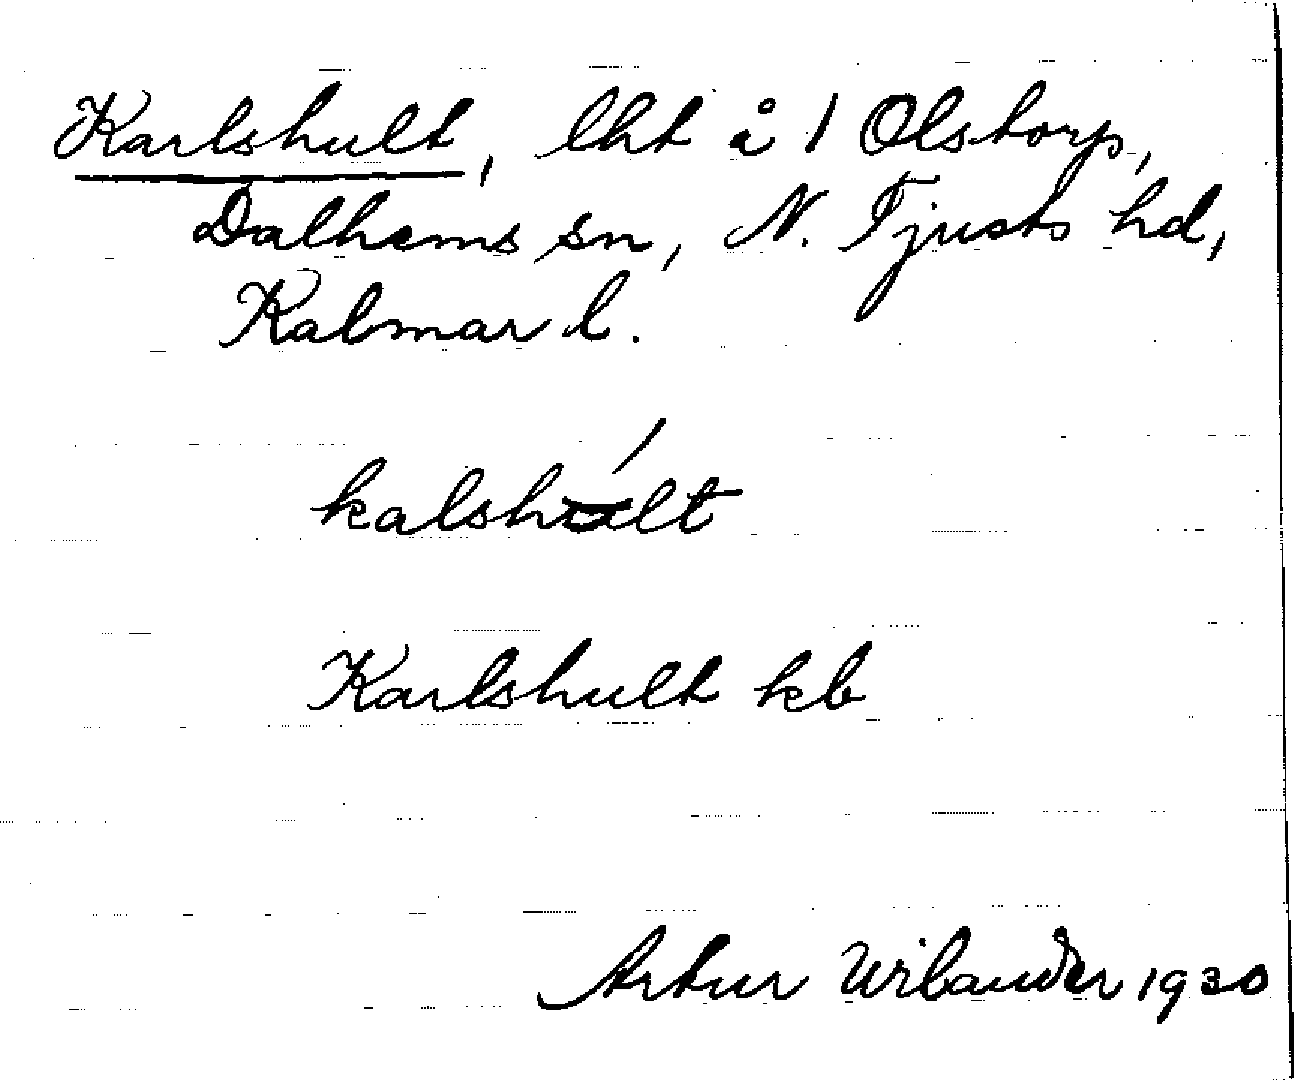 Karlshult, lht å 1 Olstorp,
Dalhems sn, N. Tjusts hd,
Kalmar l.
kalshú̵lt
Karlshult kb
Artur Wilander 1930